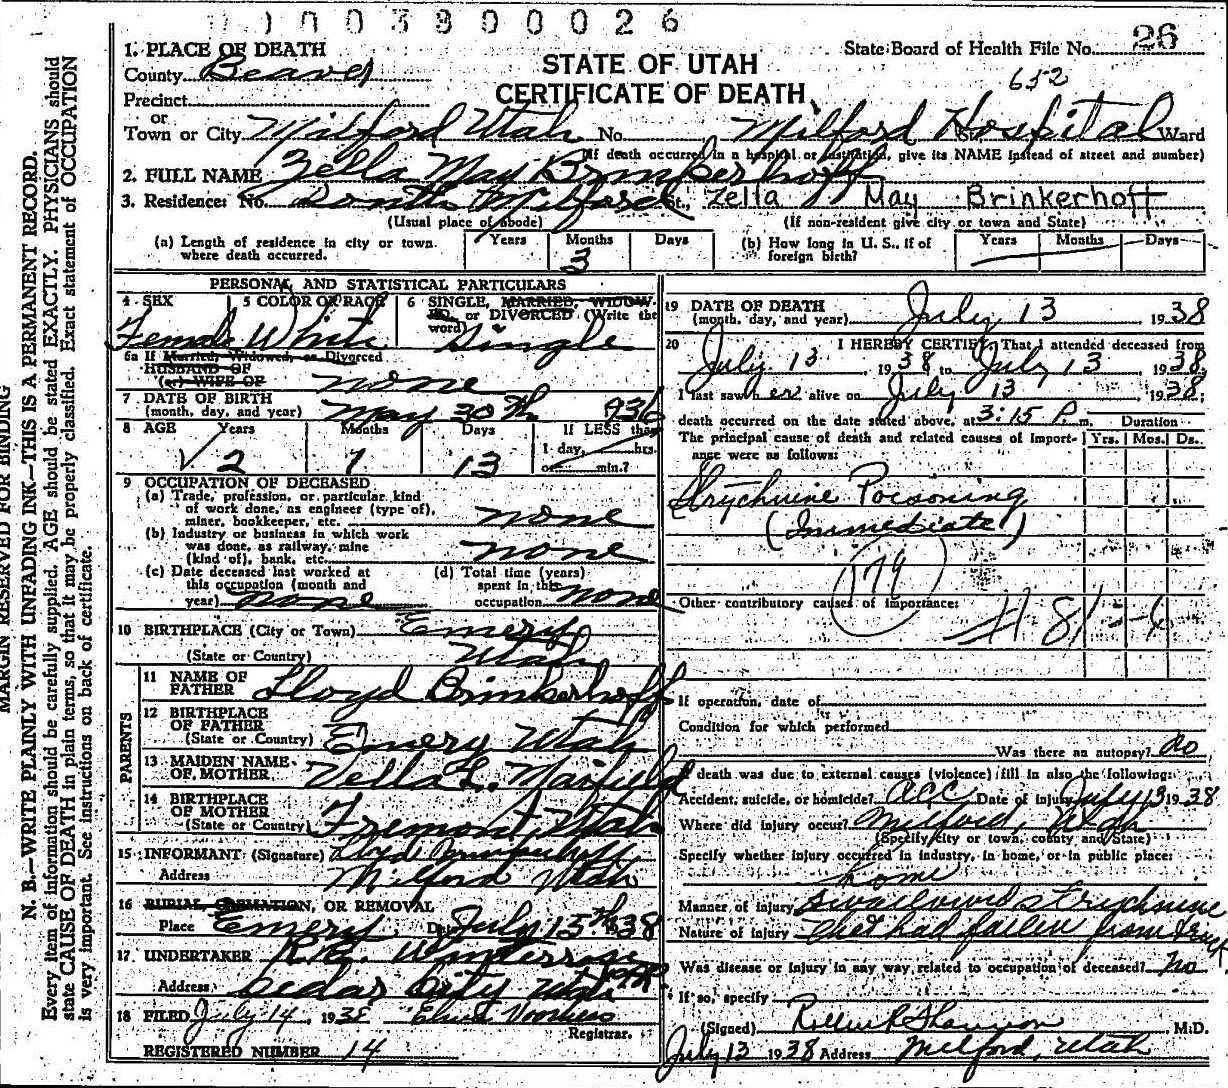 1003800026
State Board of Health File No. 26
652
STATE OF UTAH
CERTIFICATE OF DEATH
1. PLACE OF DEATH
County Beaver
Precinct
or
Town or City Milford Utah No. Milford Hospital Ward
(If death occurred in a hospital or institution, give its NAME instead of street and number)
2. FULL NAME Zella May Brinkerhoff
3. Residence: No. South Milford St., Zella May Brinkerhoff
(Usual place of abode) (If non-resident give city or town and State)
(a) Length of residence in city or town where death occurred. Years Months 3 Days
(b) How long in U. S., if of foreign birth? Years Months Days
PERSONAL AND STATISTICAL PARTICULARS
4 SEX Female
5 COLOR OR RACE White
6 SINGLE, MARRIED, WIDOWED, or DIVORCED (Write the word) Single
6a If Married, Widowed, or Divorced
HUSBAND OF
(or) WIFE OF none
7 DATE OF BIRTH
(month, day, and year) May 30th, 936
8 AGE Years 2 Months 1 Days 13 If LESS than 1 day, hrs. or min.?
9 OCCUPATION OF DECEASED
(a) Trade, profession, or particular kind
of work done, as engineer (type of),
miner, bookkeeper, etc. none
(b) Industry or business in which work
was done, as railway, mine
(kind of), bank, etc. none
(c) Date deceased last worked at
this occupation (month and
year) none
(d) Total time (years)
spent in this
occupation none
10 BIRTHPLACE (City or Town) Emery
(State or Country) Utah
PARENTS
11 NAME OF FATHER Lloyd Brinkerhoff
12 BIRTHPLACE OF FATHER
(State or Country) Emery Utah
13 MAIDEN NAME OF MOTHER Vella L.
14 BIRTHPLACE OF MOTHER
(State or Country) Fremont, Utah
15 INFORMANT: (Signature) Lloyd Brinkerhoff
Address Milford Utah
16 BURIAL, CREMATION, OR REMOVAL
Place Emery, Date July 15th 38
17 UNDERTAKER
Address Cedar City Utah
18 FILED July 14, 1938 Voorhees
Registrar.
REGISTERED NUMBER 14
19 DATE OF DEATH
(month, day, and year) July 13 1938
20 I HEREBY CERTIFY, That I attended deceased from
July 13, 1938 to July 13, 1938.
I last saw her alive on July 13, 1938;
death occurred on the date stated above, at 3:15 P. m. Duration
The principal cause of death and related causes of importance were as follows: Yrs. Mos. Ds.
Strychnine Pocsoning
(Immediate)
179
Other contributory causes of importance:
If operation, date of
Condition for which performed
Was there an autopsy? No
If death was due to external causes (violence) fill in also the following:
Accident, suicide, or homicide? Acc Date of injury July 13 1938
Where did injury occur? Milford, Utah
(Specify city or town, county and State)
Specify whether injury occurred in industry, in home, or in public place:
home
Manner of injury Swallowed Strychnine
Nature of injury that had fallen from truck
Was disease or injury in any way related to occupation of deceased? No
If so, specify
(Signed) M.D.
July 13 1938 Address Milford, Utah
MARGIN RESERVED FOR BINDING
N. B.—WRITE PLAINLY WITH UNFADING INK—THIS IS A PERMANENT RECORD.
Every item of information should be carefully supplied. AGE should be stated EXACTLY. PHYSICIANS should
state CAUSE OF DEATH in plain terms, so that it may be properly classified. Exact statement of OCCUPATION
is very important. See instructions on back of certificate.